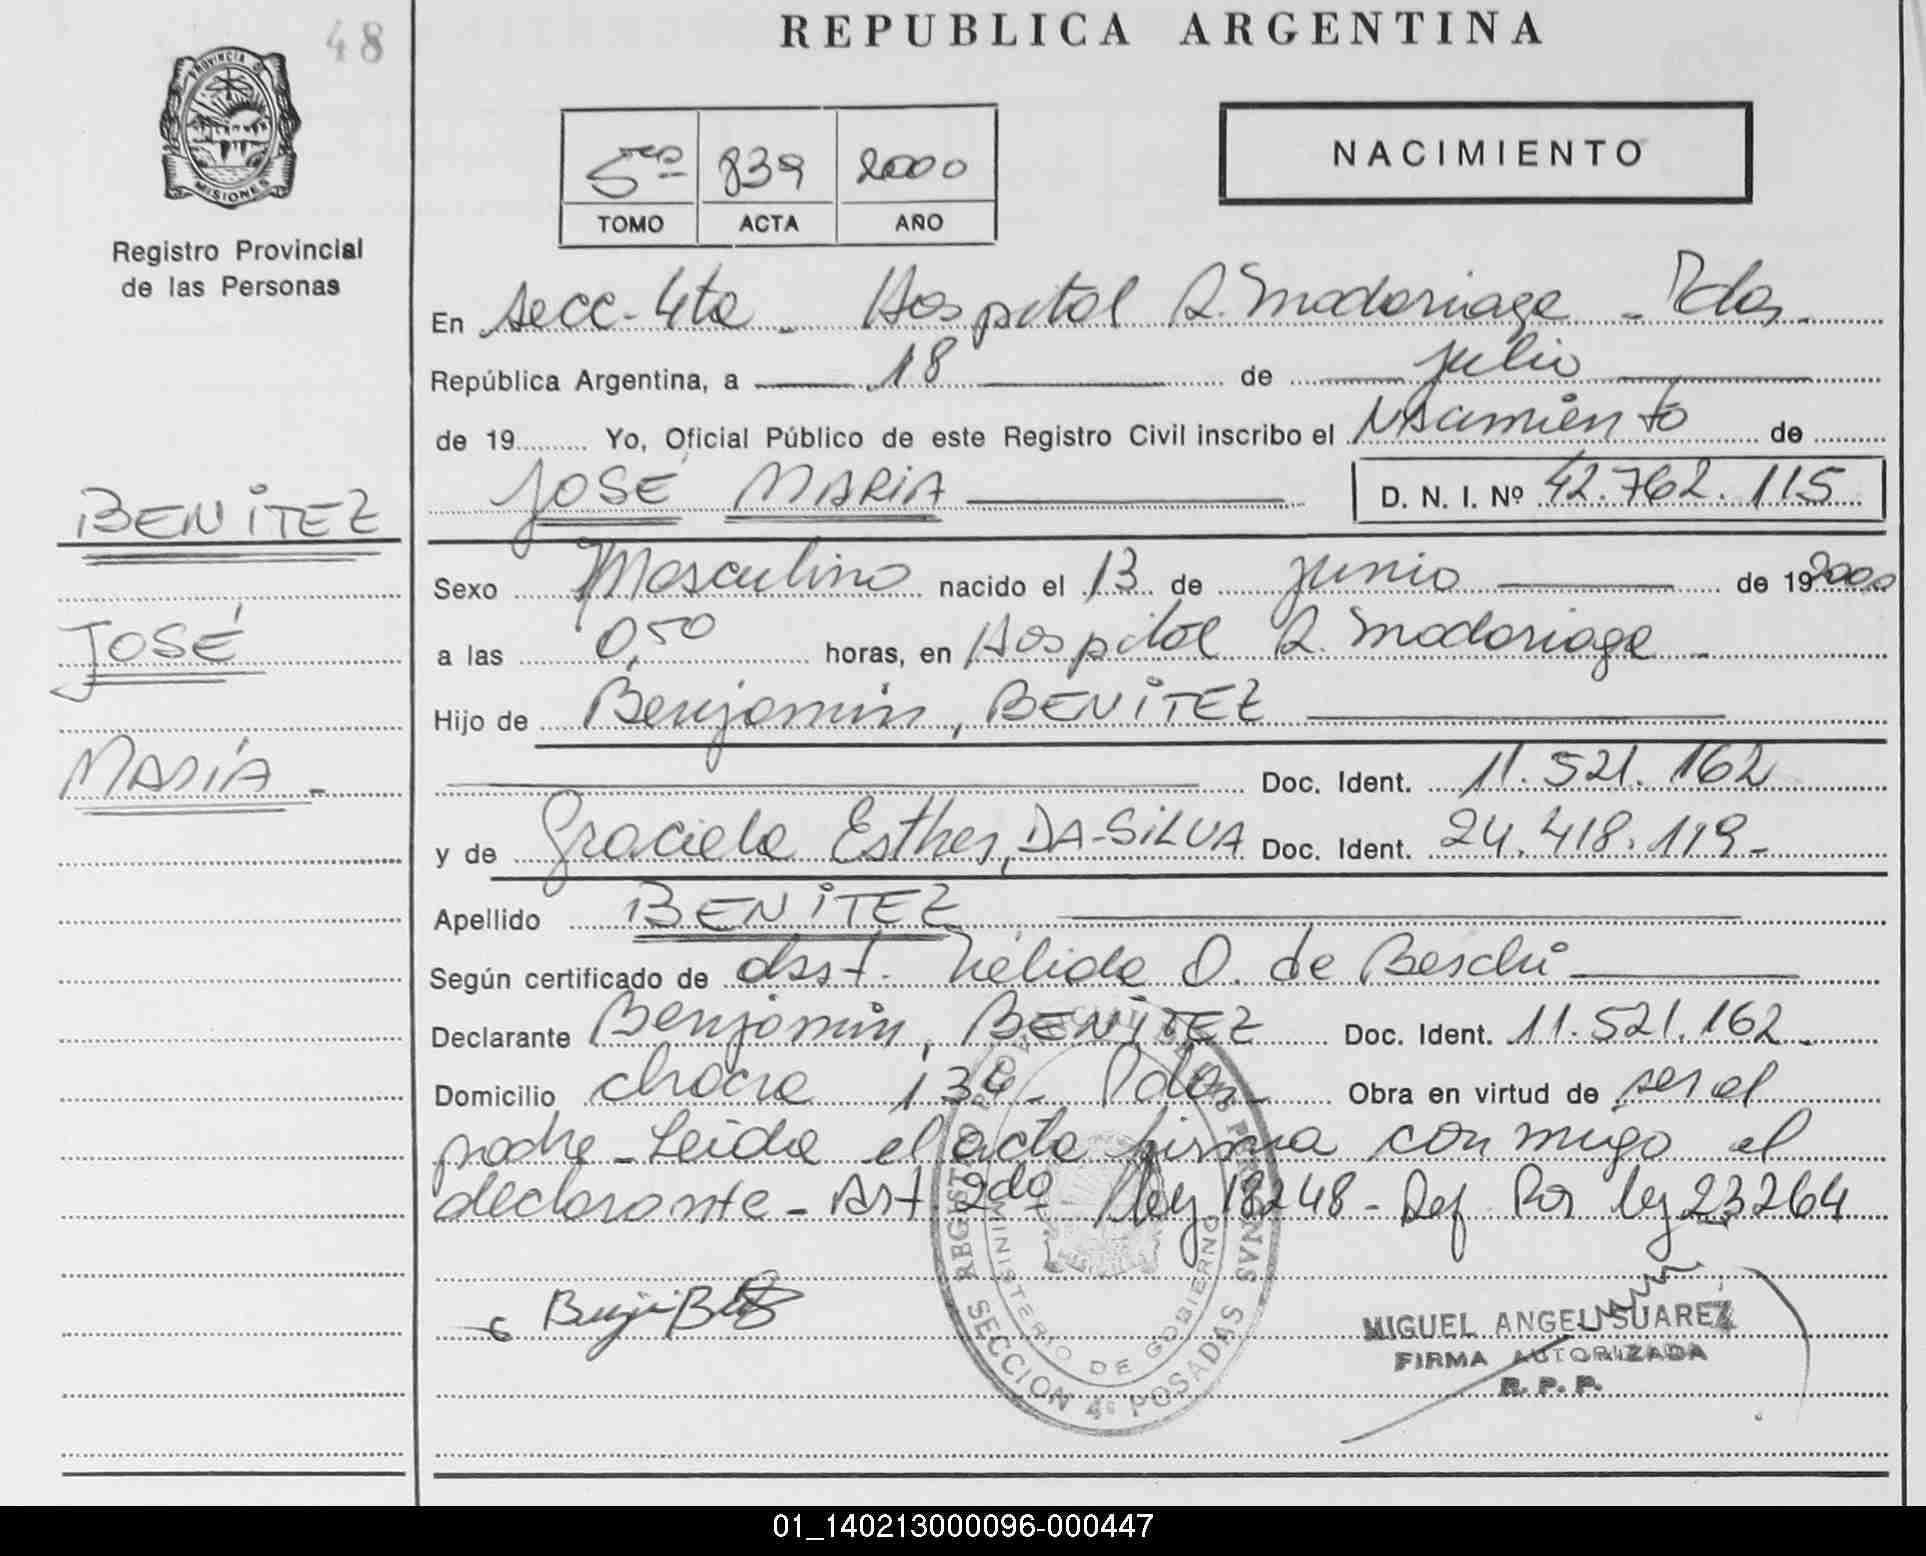 48
REPUBLICA ARGENTINA
PROVINCIA DE
MISIONES
Registro Provincial
de las Personas
5to 839 2000
TOMO ACTA AÑO
NACIMIENTO
En Secc. 4ta - Hospital R. Madariaga - Pdas.
República Argentina, a 18 de julio
de 19 Yo, Oficial Público de este Registro Civil inscribo el Nacimiento de
JOSÉ MARIA D. N. I. Nº 42.762.115
BENITEZ
JOSÉ
MARÍA -
Sexo Masculino nacido el 13 de junio de 19 2000
a las 0,50 horas, en Hospital R. Madariaga -
Hijo de Benjamin, BENITEZ
Doc. Ident. 11.521.162
y de Graciela Esther, DA-SILVA Doc. Ident. 24.418.119-
Apellido BENITEZ
Según certificado de obst. Nélida O. de Beschi
Declarante Benjamin, BENITEZ Doc. Ident. 11.521.162.
Domicilio chacra 134 - Pdas - Obra en virtud de ser el
padre - Leida el acta firma conmigo el
declarante - Art 2do ley 18248 - Def. Por ley 23264
REGISTRO PROVINCIAL DE LAS PERSONAS
MINISTERIO DE GOBIERNO
SECCION 4ª POSADAS
MIGUEL ANGEL SUAREZ
FIRMA AUTORIZADA
R. P. P.
01_140213000096-000447